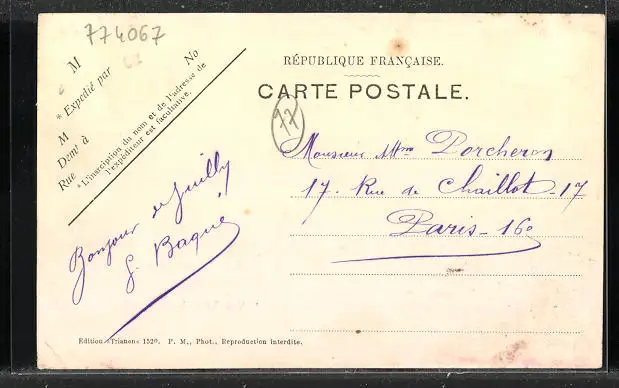 774067
M
* Expédié par
No
M
Demt à
Rue
*L'inscription du nom et de l'adresse de
l'expéditeur est facultative.
RÉPUBLIQUE FRANÇAISE.
CARTE POSTALE.
77
Monsieur Mme Porcheron
17. Rue de Chaillot - 17
Paris - 16e
Bonjour de Juilly
Baqué
Edition «Trianon» 1520. P. M., Phot., Reproduction interdite.